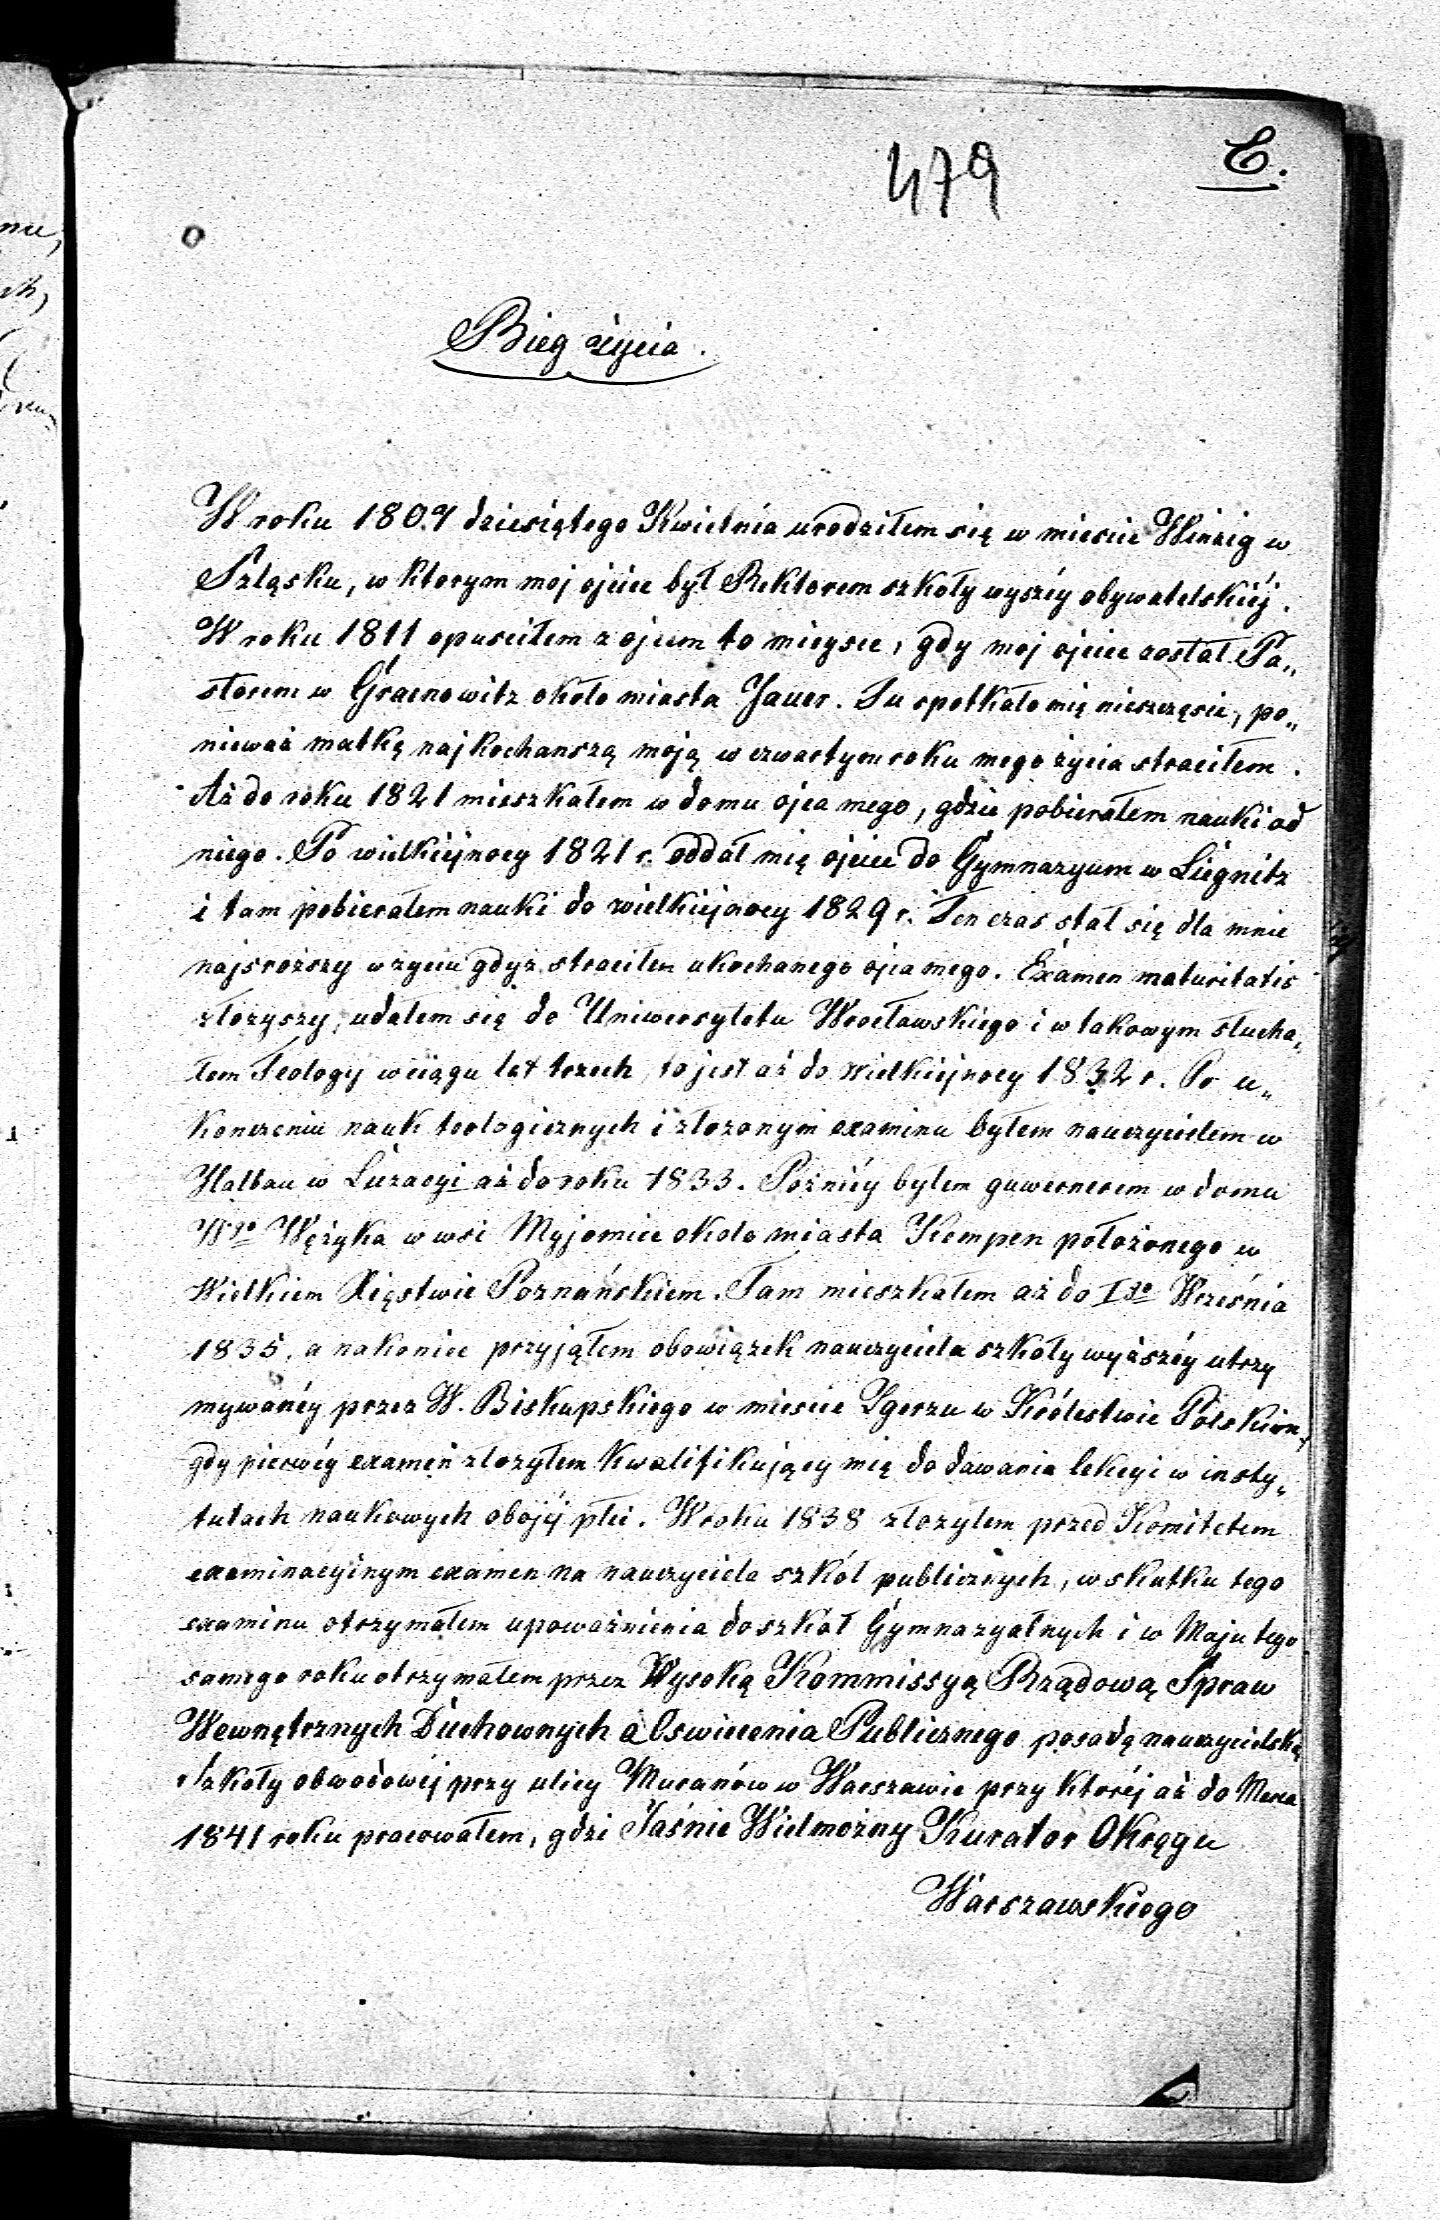 E.
479
Bieg życia.
W roku 1807 dziesiątego Kwietnia urodziłem się w miescie Winzig w
Szląsku, w ktorym moj ojciec był Rektorem szkoły wyszéy obywatelskiéj.
W roku 1811 opusciłem z ojcem to mieysce, gdy moj ojciec został Pa„
storem w Graenowitz około miasta Jauer. Tu spotkało mię nieszczęscie, po„
nieważ matkę najkochanszą moją w czwartym roku mego życia straciłem.
Aż do roku 1821 mieszkałem w domu ojca mego, gdzie pobierałem nauki od
niego. Po wielkiéjnocy 1821 r. oddał mię ojciec do Gymnazyum w Liegnitz
i tam pobierałem nauki do wielkiéjnocy 1829 r. Ten czas stał się dla mnie
najsroższy w zyciu gdyż straciłem ukochanego ojca mego. Examen maturitatis
złozyszy, udałem się do Uniwersytetu Wrocławskiego i w takowym słucha„
łem Teologij w ciągu lat trzech, to jest aż do wielkiéjnocy 1832 r. Po u„
konczeniu nauk teologicznych i złozonym examinu byłem nauczycielem w
Halbau w Luzacyi aż do roku 1833. Pozniéy byłem guwernerem w domu
Wgo Wężyka w wsi Myjomice około miasta Kempen położonego w
Wielkiem Xięstwie Poznańskiem. Tam mieszkałem aż do Igo Września
1835, a nakoniec przyjąłem obowiązek nauczyciela szkoły wyższéy utrzy
mywanéy przez W. Biskupskiego w miescie Zgerzu w Królestwie Polskiem,
gdy pierwéy examen złozyłem kwalifikujący mię do dawania lekcyi w insty„
tutach naukowych obojéj płci. W roku 1838 złozyłem przed Komitetem
examinacyinym examen na nauczyciela szkół publicznych, w skutku tego
examinu otrzymałem upoważnienia do szkół Gymnazyalnych i w Maju tego
samego roku otrzymałem przez Wysoką Kommissyą Rządową Spraw
Wewnętrznych Duchownych a Oswiecenia Publicznego posadę nauczycielską
Szkoły obwodowéj przy ulicy Muranów w Warszawie przy któréj aż do Marca
1841 roku pracowałem, gdzi Jaśnie Wielmożny Kurator Okręgu
Warszawskiego